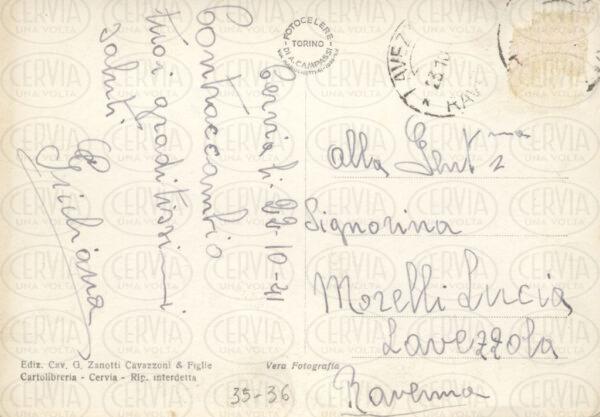 Cervia li. 22-10-41
Contraccambio
tuoi graditissimi
saluti
Giuliana
FOTOCELERE
TORINO
DI A. CAMPASSI
LAVEZ
23.10
RAV
Alla Gent ma
Signorina
Morelli Lucia
Lavezzola
Ravenna
Ediz. Cav. G. Zanotti Cavazzoni & Figlie
Cartolibreria - Cervia - Rip. interdetta
Vera Fotografia
35-36
CERVIA
UNA VOLTA